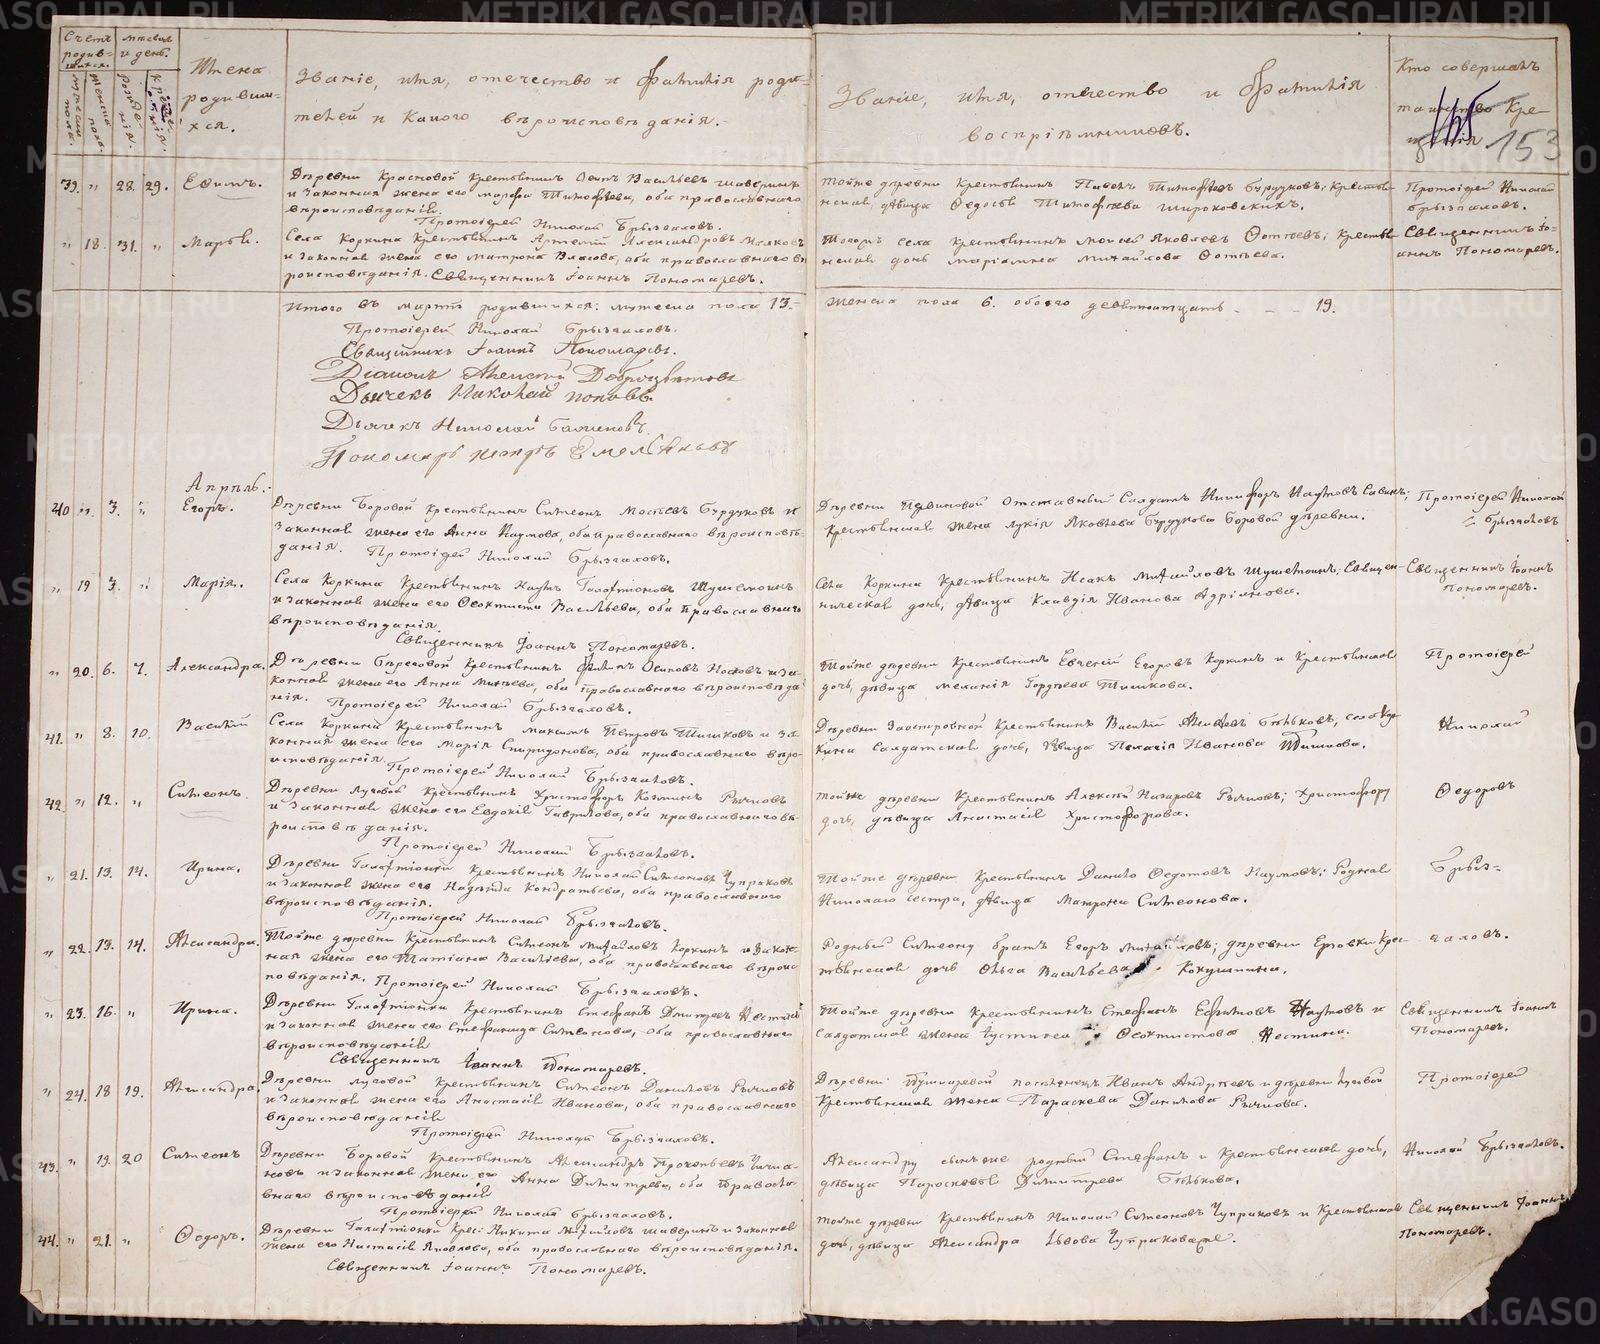 Счетъ родившихся.
мужеска пола.
женска пола.
Мѣсяцъ и день.
рожденія.
крещенія.
Имена родившихся.
Званіе, имя, отечество и фамилія роди-
телей и Какого вѣроисповѣданія.
Званіе, имя, отечество и Фамилія
воспріѣмниковъ.
Кто совершалъ
таинство Кре-
щенія
153
39. " 28. 29. Евѳимъ.
Деревни Красновой крестьянинъ Осипъ Васильевъ Шаверинъ
и законная жена его Марфа Тимофѣева, оба православнаго
вѣроисповѣданія.
Протоіерей Николай Брызгаловъ.
тойже деревни крестьянинъ Павелъ Тимофѣевъ Бурдуковъ; крестья-
нская дѣвица Ѳедосья Тимофѣева Широковскихъ.
Протоіерей Николай
Брызгаловъ.
" 18. 31. " Марья.
Села Коркина Крестьянинъ Артемій Александровъ
и законная жена его Матрона Власова, оба православнаго вѣ-
роисповѣданія. Священникъ Іоаннъ Пономаревъ.
Тогожъ села крестьянинъ Моисей Яковлевъ Ѳотѣевъ; крестья-
нская дочь Маріамна Михайлова Ѳотѣева.
Священникъ Іо-
аннъ Пономаревъ.
Итого въ мартѣ родившихся: мужеска пола 13.-
женска пола 6. обоего девятнатцать - - - 19.
Протоіерей Николай Брызгаловъ.
Священникъ Іоаннъ Пономаревъ.
Діаконъ Алексей Доброцвѣтовъ
Дьячекъ Николай Поповъ.
Дьячекъ Николай
Пономарь Петръ Емельяновъ
Апрѣль.
40 " 3. " Егоръ.
Деревни Боровой крестьянинъ Симеонъ Бурдуковъ и
законная жена его Анна Наумова, оба православнаго вѣроисповѣ-
данія. Протоіерей Николай Брызгаловъ.
Деревни отставный Солдатъ Никифоръ Наумовъ Савинъ;
Крестьянская жена Лукія Яковлева Бурдукова Боровой деревни.
Протоіерей Николай
Брызгаловъ
" 19 3. " Марія.
Села Коркина Крестьянинъ Наумъ Галактіоновъ
и законная жена его Ѳеоктиста Васильева, оба православнаго
вѣроисповѣданія.
Священникъ Іоаннъ Пономаревъ.
Села Коркина Крестьянинъ Исакъ Михайловъ; Священ-
ническая дочь, дѣвица Клавдія Иванова Адріанова.
Священникъ Іоаннъ
Пономаревъ.
" 20. 6. 7. Александра.
Деревни Береговой Крестьянинъ Филипъ Осиповъ Носковъ и за-
конная жена его Анна, оба православнаго вѣроисповѣда-
нія. Протоіерей Николай Брызгаловъ.
тойже деревни Крестьянинъ Евгеній Егоровъ Коркинъ и Крестьянская
дочь, дѣвица Меланія Гордѣева Тишкова.
Протоіерей
41. " 8. 10. Василій
Села Коркина крестьянинъ Максимъ Петровъ Тишковъ и за-
конная жена его Марія Спиридонова, оба православнаго вѣро-
исповѣданія
Протоіерей Николай Брызгаловъ.
Деревни Заостровной Крестьянинъ Василій Бѣльковъ, села Кор-
кина Солдатская дочь, дѣвица Пелагія Иванова Тишкова.
Николай
42. " 12. " Симеонъ.
Деревни Луговой Крестьянинъ Христофоръ Козминъ Рычковъ
и законная жена его Евдокія Гаврилова, оба православнаго вѣ-
роисповѣданія.
Протоіерей Николай Брызгаловъ.
тойже деревни Крестьянинъ Алексѣй Назаровъ Рычковъ; Христофору
дочь, дѣвица Анастасія Христофорова.
Ѳедоровъ
" 21. 13. 14. Ирина.
Деревни Крестьянинъ Николай Симеоновъ Чупраковъ
и законная жена его Надежда Кондратьева, оба православнаго
вѣроисповѣданія.
Протоіерей Николай Брызгаловъ.
Тойже деревни Крестьянинъ Данило Ѳедотовъ Наумовъ; Родная
Николаю сестра, дѣвица Матрона Симеонова.
Брыз-
" 22. 13. 14. Александра.
Тойже деревни Крестьянинъ Симеонъ Михайловъ Коркинъ и закон-
ная жена его Татіана Васильева, оба православнаго вѣроис-
повѣданія. Протоіерей Николай Брызгаловъ.
Родный Симеону братъ Егоръ Михайловъ; деревни Ерзовки Крес-
тьянская дочь Ольга Васильева Кокушкина.
галовъ.
" 23. 16. " Ирина.
Деревни Крестьянинъ Стефанъ Дмитревъ
и законная жена его Стефанида Симеонова, оба православнаго
вѣроисповѣданія
Священникъ Іоаннъ Пономаревъ.
Тойже деревни Крестьянинъ Стефанъ Ефимовъ Наумовъ и
Солдатская жена Іустинія Ѳеоктистова
Священникъ Іоаннъ
Пономаревъ.
" 24. 18 19. Александра.
Деревни Луговой Крестьянинъ Симеонъ Даниловъ Рычковъ
и законная жена его Анастасія Иванова, оба православнаго
вѣроисповѣданія
Протоіерей Николай Брызгаловъ.
Деревни поселенецъ Иванъ Андрѣевъ и деревни Луговой
Крестьянская жена Параскева Данилова Рычкова.
Протоіерей
43. " 19. 20 Симеонъ
Деревни Боровой Крестьянинъ Александръ Прокопьевъ
новъ и законная жена его Анна Димитрева, оба Правосла-
внаго вѣроисповѣданія
Протоіерей Николай Брызгаловъ.
Александру родный Стефанъ и Крестьянская дочь,
дѣвица Параскевья Димитрева Бѣлькова.
Николай Брызгаловъ.
44. " 21. " Ѳедоръ.
Деревни Крес: Никита Михайловъ Шаверинъ и законная
жена его Настасія Яковлева, оба православнаго вѣроисповѣданія.
Священникъ Іоаннъ Пономаревъ.
тойже деревни Крестьянинъ Николай Симеоновъ Чупраковъ и Крестьянская
дочь, дѣвица Александра Львова
Священникъ Іоаннъ
Пономаревъ.
METRIKI.GASO-URAL.RU